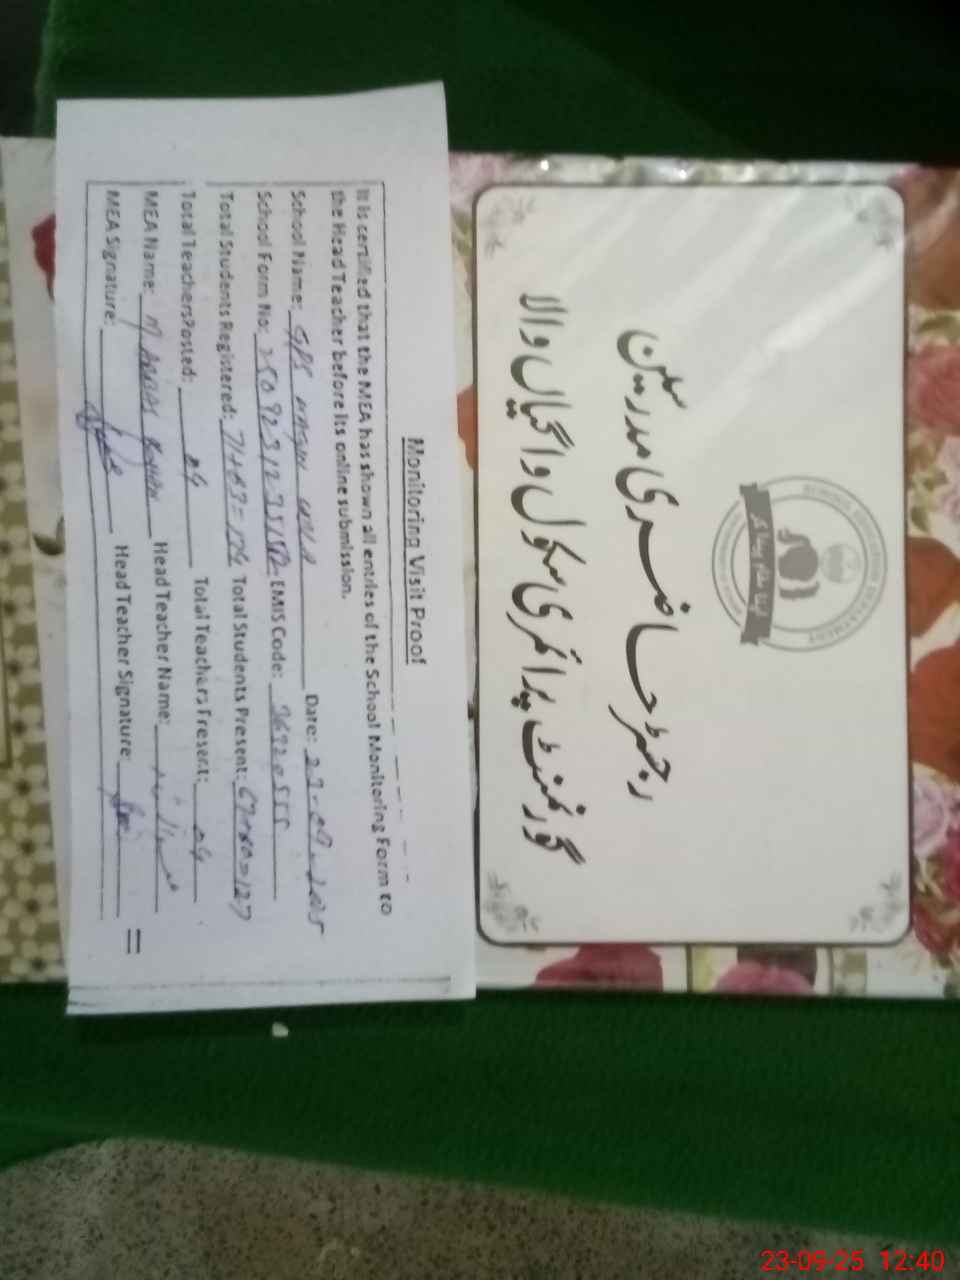 Monitoring Visit Proof
It is certified that the MEA has shown all entries of the School Monitoring Form to
the Head Teacher before its online submission.
School Name: GPS WALA Date: 23-09-2025
School Form No: EMIS Code:
Total Students Registered: Total Students Present: 67+60=127
Total Teachers Posted: 04 Total Teachers Present: 04
MEA Name: M ABBAS Head Teacher Name:
MEA Signature: Head Teacher Signature:
SCHOOL EDUCATION DEPARTMENT
رجسٹر حاضری مدرسین
گورنمنٹ پرائمری سکول واگیاں والا
23-09-25 12:40